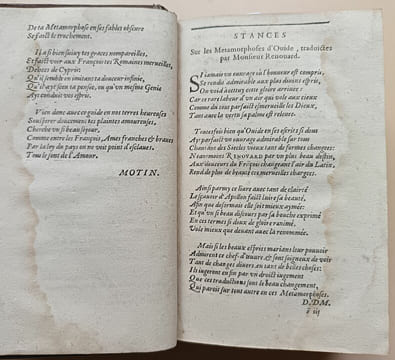 De ta Metamorphose en ses fables obscure
Se faict le truchement.
Il a si bien suiuy tes graces nompareilles,
Et faict voir aux François tes Romaines merueilles,
Deuotes de Cypris:
Qu'il semble en imitant ta douceur infinie,
Qu'il ayt seen ta pensee, ou qu'un mesme Genie
Ayt conduit vos esprits.
Vien donc auec ce guide en nos terres heureuses
Souspirer doucement tes plaintes amoureuses,
Cherche vn si beau sejour.
Comme entre les François, Ames franches & braues
Par la loy du pays on ne voit point d'esclaues,
Tous le sont de l'Amour.
MOTIN.
STANCES
Sur les Metamorphoses d'Ouide, traduictes
par Monsieur Renouard.
SI iamais un ouurage où l'honneur est compris,
Se rendit admirable aux plus diuins esprits,
On void auiourd'huy ceste gloire arriuee:
Car ce rare labeur d'vn air qui vole aux cieux
Comme du tout parfaict esmerueille les Dieux,
Tant auec la vertu sa palme est releuee.
Toutesfois bien qu'Ouide en ses escrits si doux
Ay parfaict vn ouurage admirable sur tous
Chantant des Siecles vieux tant de formes changees:
Neantmoins RENOVARD par vn plus beau destin,
Aux douceurs du François changeant l'air du Latin,
Rend de plus de beautez ces merueilles changees.
Ainsi parmy ce liure auec tant de clairté
Le sçauant d'Apollon faict luire sa beauté,
Afin que desormais elle soit mieux aymee:
Et qu'vn si beau discours par sa bouche exprimé
En ces termes si doux de gloire ranimé,
Vole mieux que deuant auec la renommée.
Mais si les beaux esprits marians leur pouuoir
Admirent ce chef-d'œuure & sont soigneux de voir
Tant de changes diuers en tant de belles choses:
Ils iugeront en fin par vn droict iugement
Que ces traductions sont le beau changement,
Qui paroist sur tout autre en ces Metamorphoses.
D. DM.
é iij